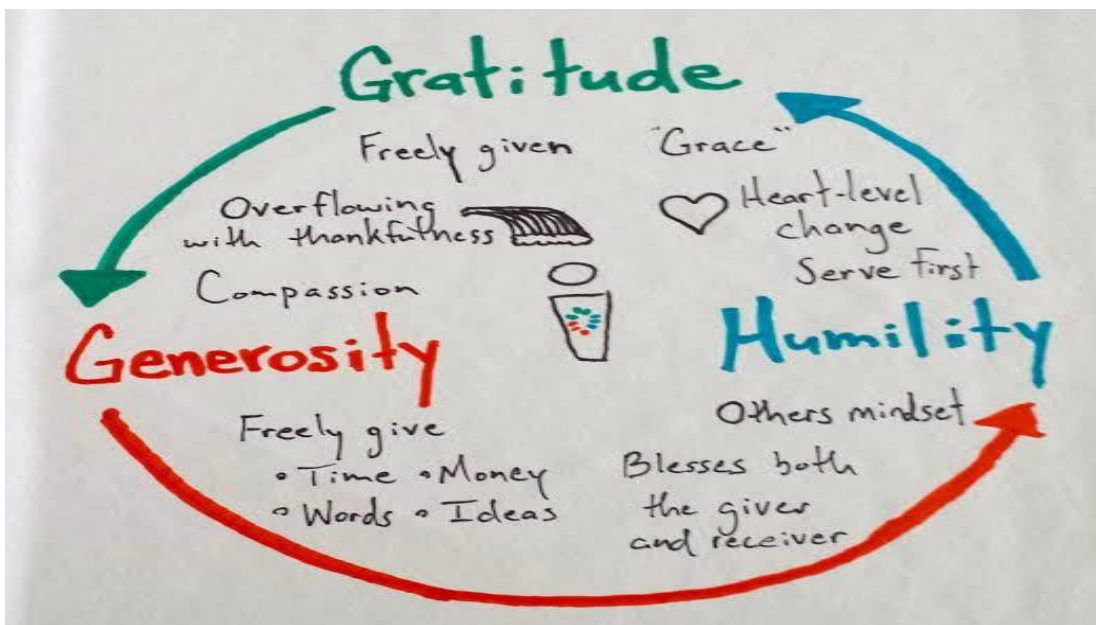 Gratitude
Freely given
"Grace"
Overflowing
with thankfulness
Heart-level
change
Serve first
Compassion
Generosity
Humility
Freely give
• Time • Money
• Words • Ideas
Others mindset
Blesses both
the giver
and receiver